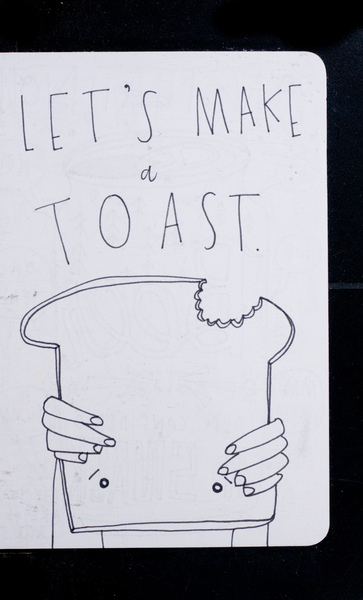 LET'S MAKE
a
TOAST.